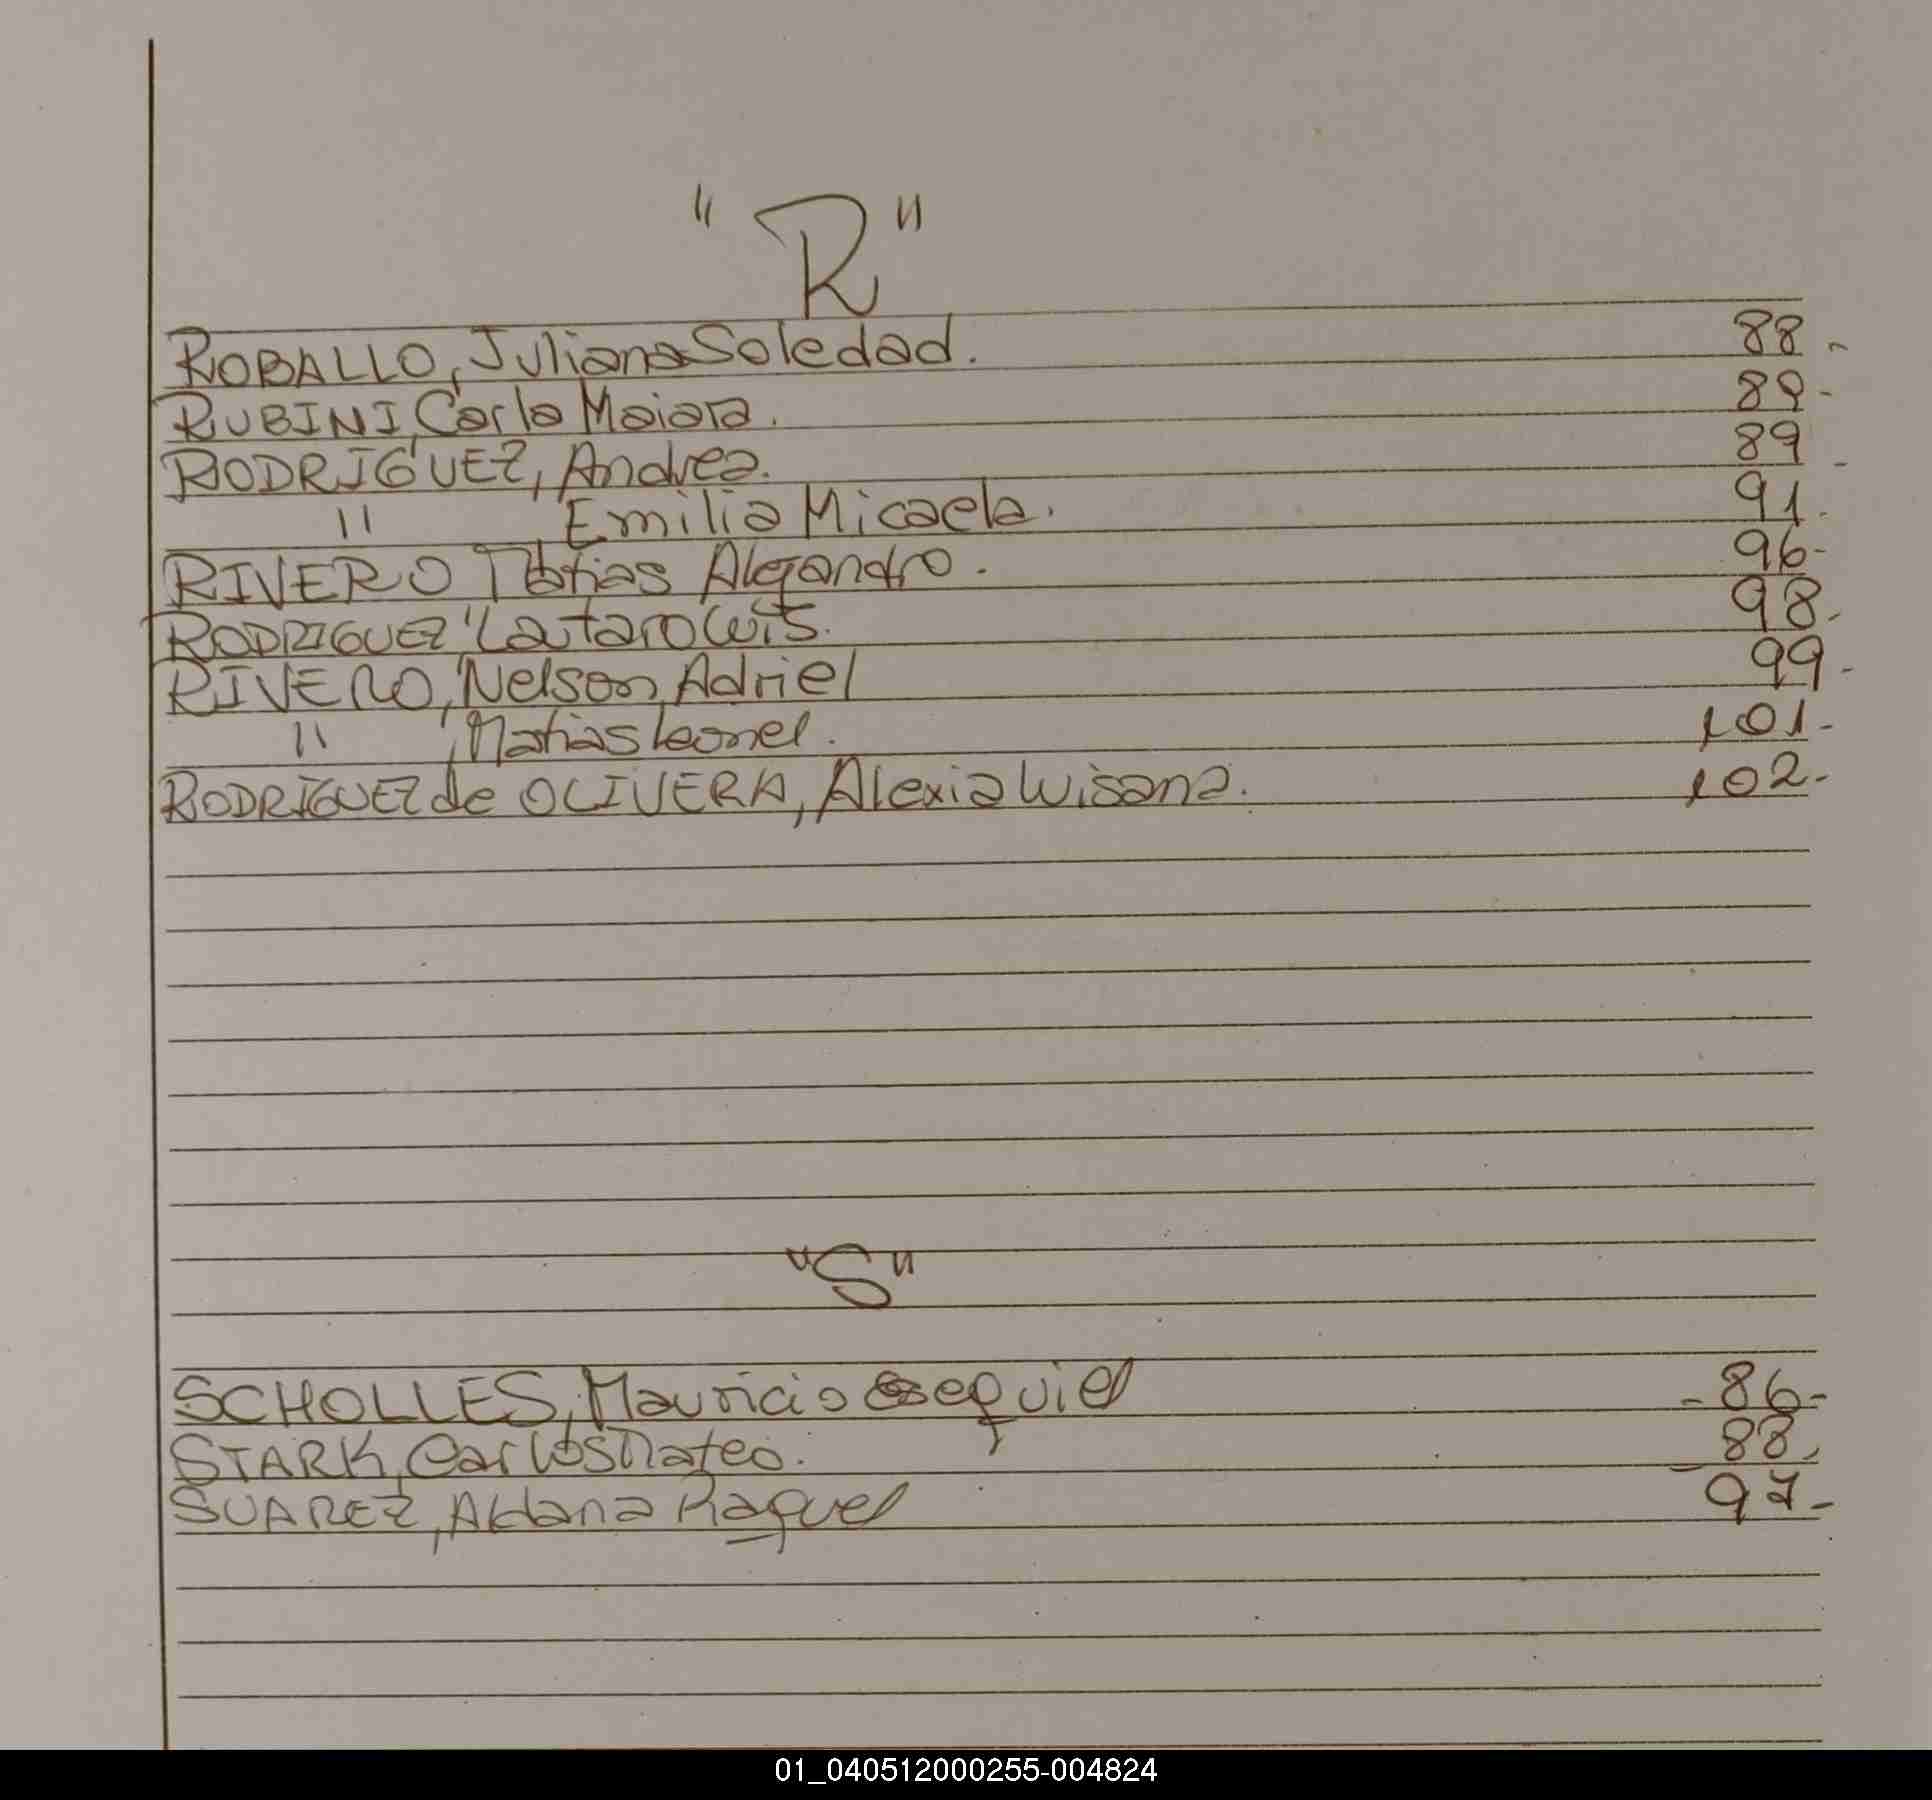 "R"
ROBALLO, Juliana Soledad. 88-
RUBINI, Carla Maiara. 89-
RODRIGUEZ, Andrea. 89-
" Emilia Micaela. 91.
RIVERO Matias Alejandro. 96-
RODRIGUEZ, Lautaro Luis. 98-
RIVERO, Nelson Adriel 99-
" , Matias Leonel. 101-
RODRIGUEZ de OLIVERA, Alexia Luisana. 102-
"S"
SCHOLLES, Mauricio esequiel -86-
STARK, Carlos Mateo. 88.
SUAREZ, Aldana Raquel -97-
01_040512000255-004824